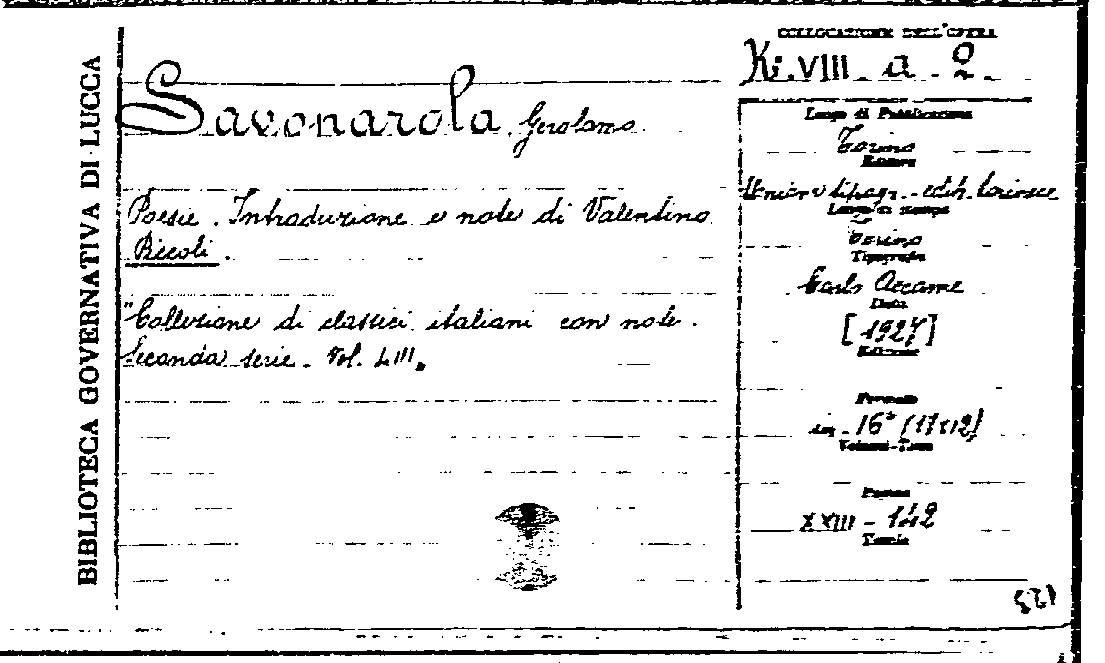 BIBLIOTECA GOVERNATIVA DI LUCCA
Savonarola Girolamo
Poesie. Introduzione e note di Valentino
Piccoli.
"Collezione di classici italiani con note.
Seconda serie. Vol. LIII.
COLLOCAZIONE DELL'OPERA
VIII a 2
Luogo di Pubblicazione
Torino
Editore
Unione tipogr.-edit. torinese
Luogo di stampa
Torino
Tipografia
Carlo Accame
Data
[1927]
Edizione
Formato
in 16° (17x12)
Volumi-Tomi
Pagine
XXIII - 142
Tavole